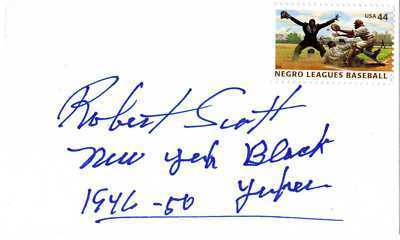 USA 44
NEGRO LEAGUES BASEBALL
Robert Scott
New York Black
1946-50 Yankees